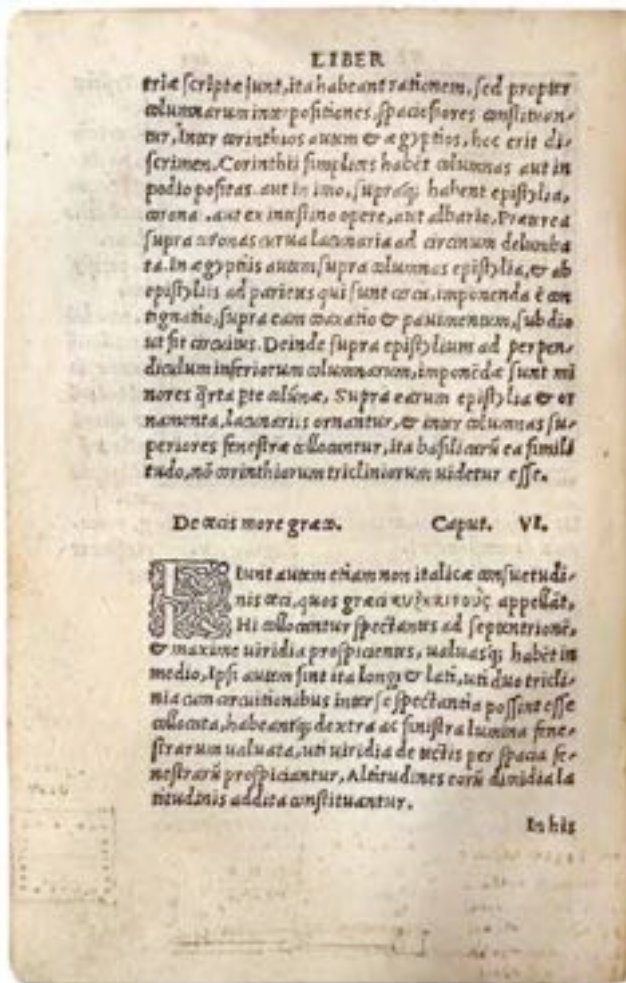 LIBER
triæ scriptæ sunt, ita habeant rationem, sed propter
columnarum interpositiones, spaciosiores constituon-
tur, Inter corinthios autem & ægyptios, hec erit di-
scrimen. Corinthii simplices habēt columnas aut in
podio positas. aut in imo, supraq; habent epistylia,
corona, aut ex intestino opere, aut albario, Præterea
supra coronas curua lacunaria ad circinum delumba
ta. In ægyptiis autem, supra columnas epistylia, & ab
epistyliis ad parietes qui sunt circa, imponenda ē con
tignatio, supra eam coaxatio & pauimentum, sub dio
ut sit circuitus. Deinde supra epistylium ad perpen-
diculum inferiorum columnarum, imponēdæ sunt mi
nores q̄rta pte colūnæ, Supra earum epistylia & or
namenta, lacunariis ornantur, & inter columnas su-
periores fenestræ collocantur, ita basilicarū ea simili
tudo, nō corinthiorum tricliniorum uidetur esse.
De œcis more græco. Caput. VI.
FIunt autem etiam non italicæ consuetudi-
nis œci, quos græci κυζικινοὺς appellāt,
Hi collocantur spectantes ad septentrionē,
& maxime uiridia prospicientes, ualuasq; habēt in
medio, Ipsi autem sint ita longi & lati, uti duo tricli-
nia cum circuitionibus inter se spectantia possint esse
collocata, habeantq; dextra ac sinistra lumina fene-
strarum ualuata, uti uiridia de tectis per spacia fe-
nestrarū prospiciantur, Altitudines eorū dimidia la
titudinis addita constituantur.
In his